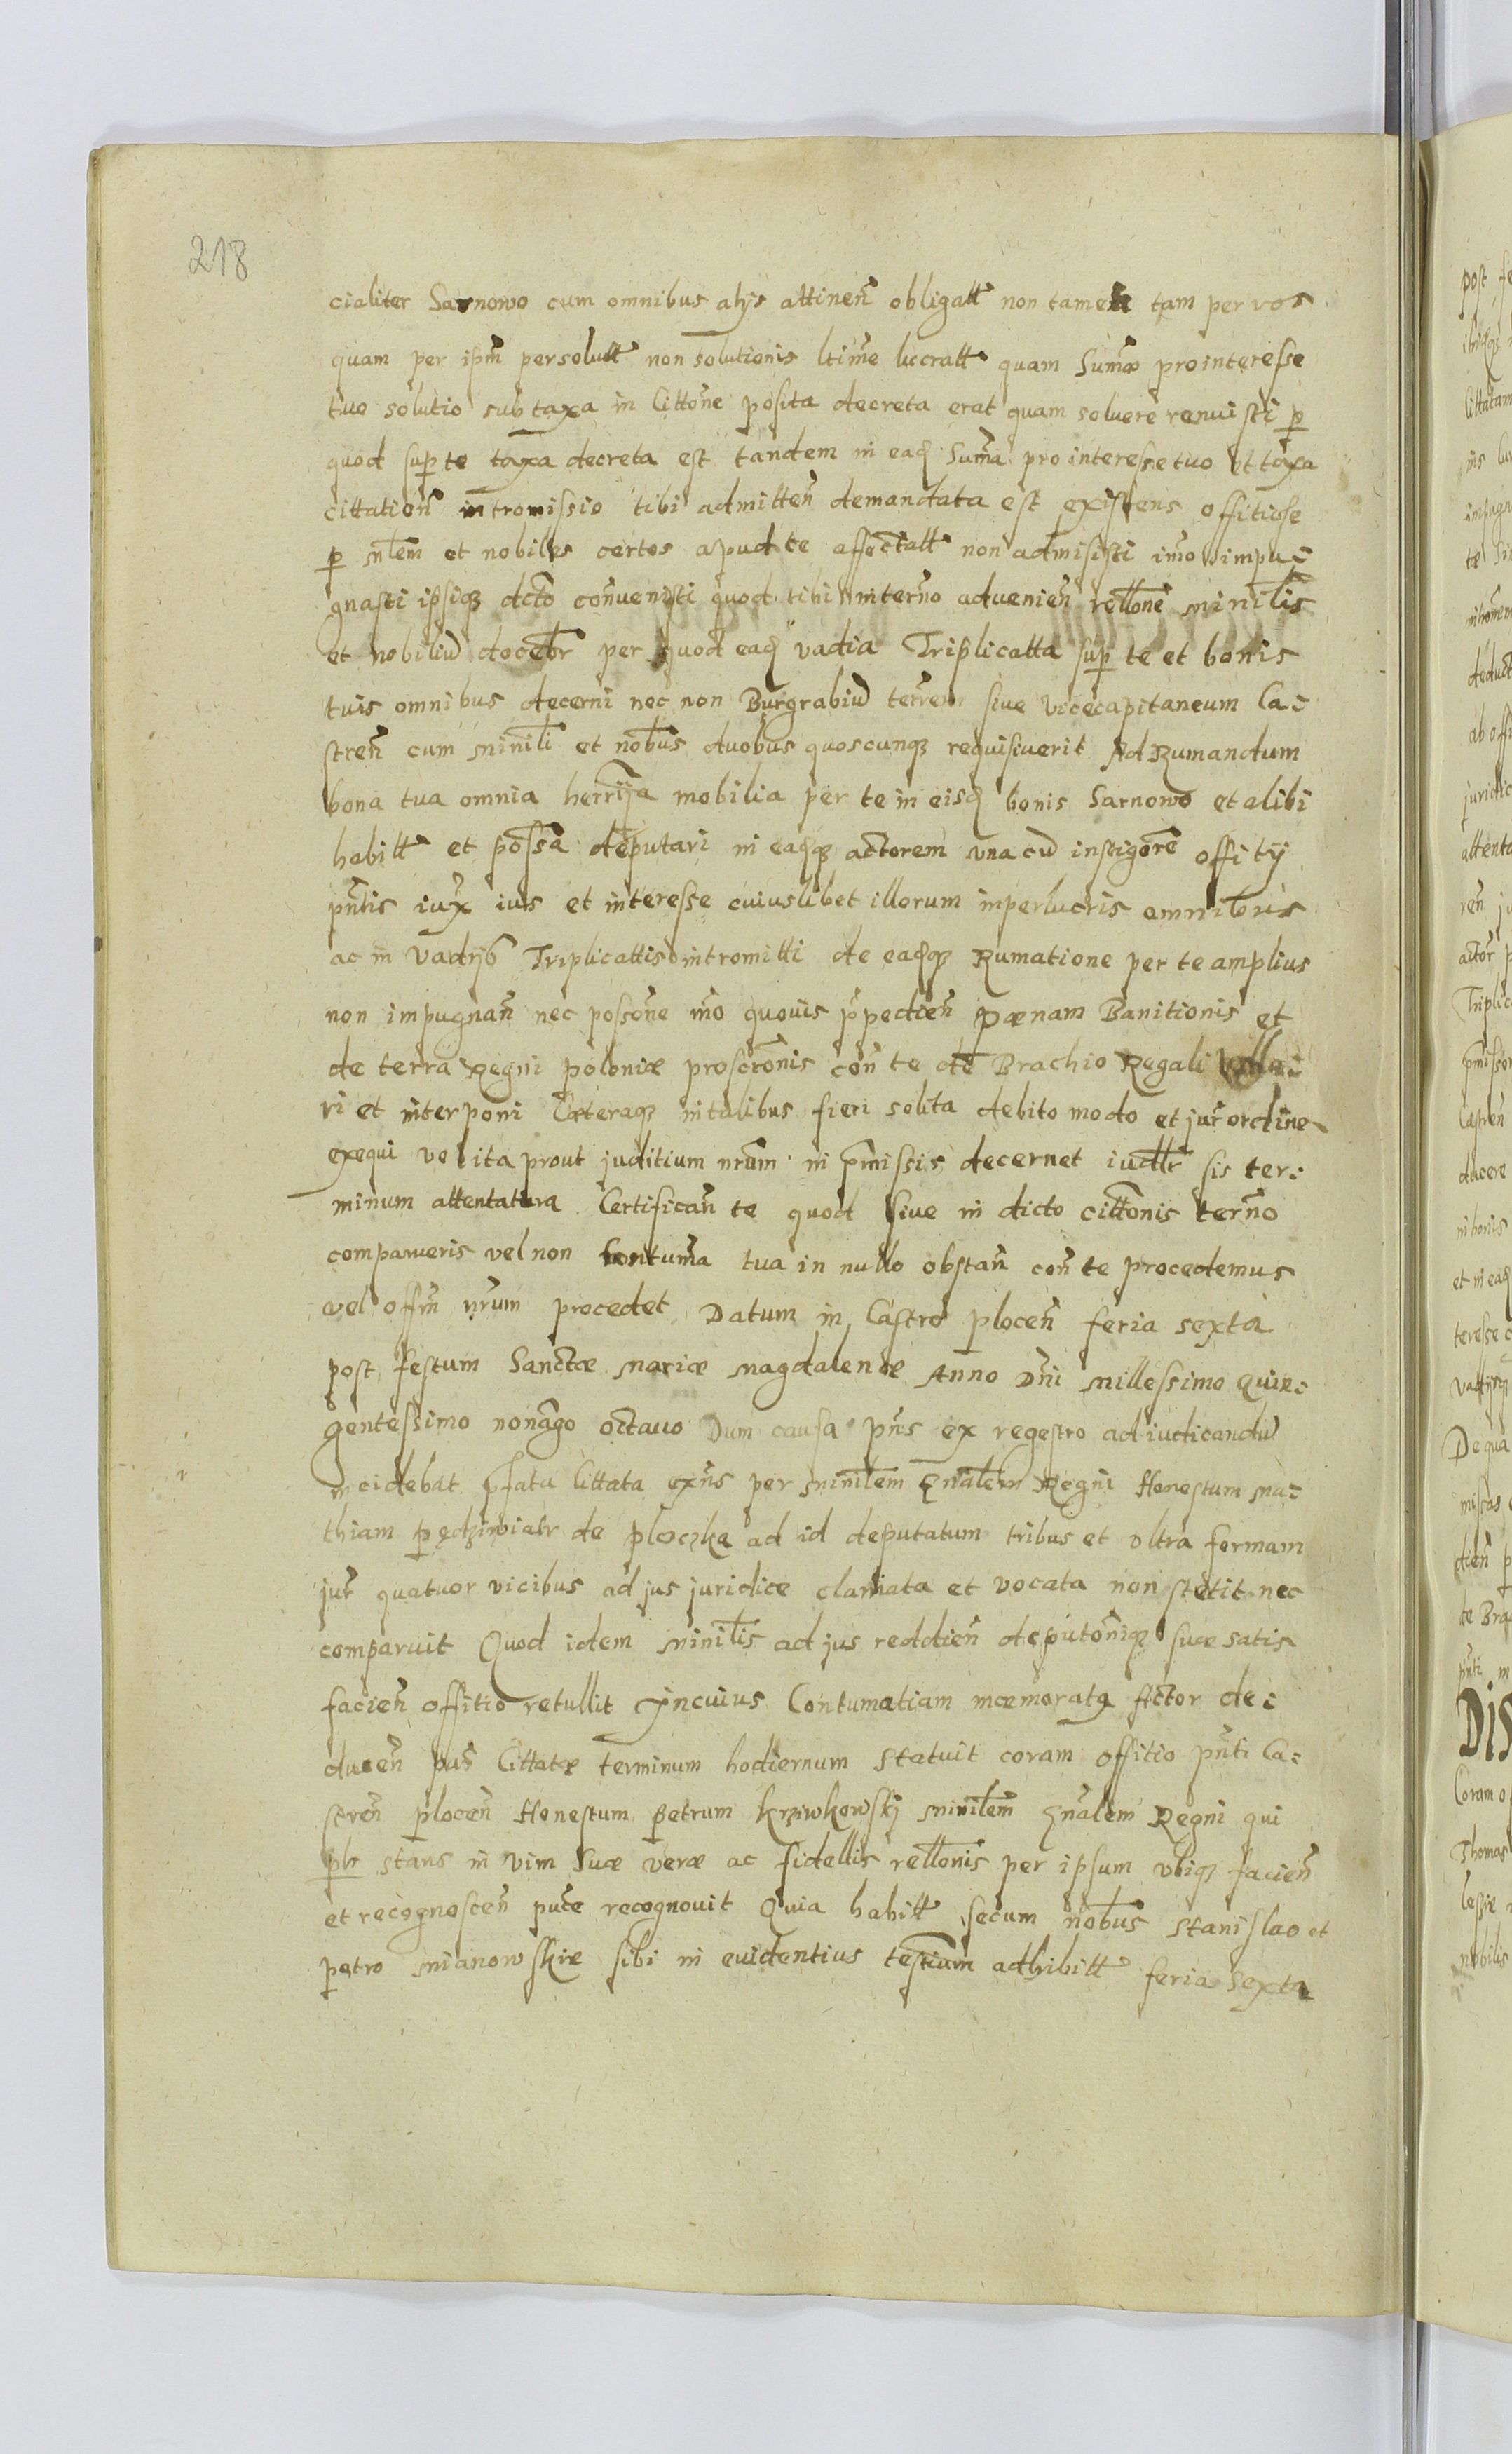 218
cialiter Sarnowo cum omnibus alijs attinen̄ obligatt non tamen tam per vos
quam per ipm̄ persolutt non solutionis ltime lucratt quam Sum̄æ pro interesse
tuo solutio sub taxa in Cittōne posita decreta erat quam soluere renuisti p
quod sup te taxa decreta est tandem in eaq Sum̄a pro interesse tuo et taxa
cittation̄ intromissio tibi admitten̄ demandata est existens offitiose
p mlem et nobiles certos apud te affectatt non admisisti imo impu-
gnasti ipsiq dcto con̄venisti quod tibi in tern̄o advenien̄ rellone minilis
et nobiliu docebr per quod eaq vadia Triplicatta sup te et bonis
tuis omnibus decerni nec non Burgrabiu terrem siue Vicecapitaneum Ca-
stren̄ cum minili et nobus duobus quoscunq requisiuerit Ad Rumandum
bona tua omnia herrija mobilia per te in eisq bonis Sarnowo et alibi
habitt et possa deputari in eaqq actorem vna cu instigore offitij
pn̄tis iux ius et interesse cuiuslibet illorum in perlucris omnibus
ac in Vadijs Triplicattis intromitti de eaqq Rumatione per te amplius
non impugnan̄ nec possone m̄o quouis p̄pedien̄ pænam Banitionis et
de terra Regni poloniæ proscronis con̄ te de Brachio Regali
ri et interponi Cæteraq in talibus fieri solita debito modo et jur ordine
exequi vel ita prout juditium nrum in pmissis decernet iudtr sis ter-
minum attentatura Certifican̄ te quod siue in dicto cittonis tern̄o
comparueris vel non Contuma tua in nullo obstan̄ con̄ te procedemus
vel offm̄ nrum procedet Datum in Castro plocen̄ feria sexta
post festum Sanctæ Mariæ Magdalenæ Anno Dn̄i Millessimo Quin-
gentessimo nonago octauo Dum causa pn̄s ex regestro ad iudicandu
incidebat pfata Cittata exn̄s per minilem Gnalem Regni Honestum Ma-
thiam pędziwiatr de ploczka ad id deputatum tribus et vltra formam
jur quatuor vicibus ad jus juridice clamata et vocata non stetit nec
comparuit Quod idem minilis ad jus reddien̄ deputoniq suæ satis
facien̄ offitio retullit Jn cuius Contumatiam mæmoratq Actor de-
ducen̄ Cittatæ terminum hodiernum Statuit coram offitio pn̄ti Ca-
stren̄ plocen̄ Honestum petrum krziwkowskj minilem Gnalem Regni qui
plr stans in vim suæ veræ ac fidellis rellonis per ipsum vbiq facien̄
et recognoscen̄ puce recognouit Quia habitt secum nobus Stanislao et
petro mianowskie sibi in euidentius testium adhibitt feria sexta